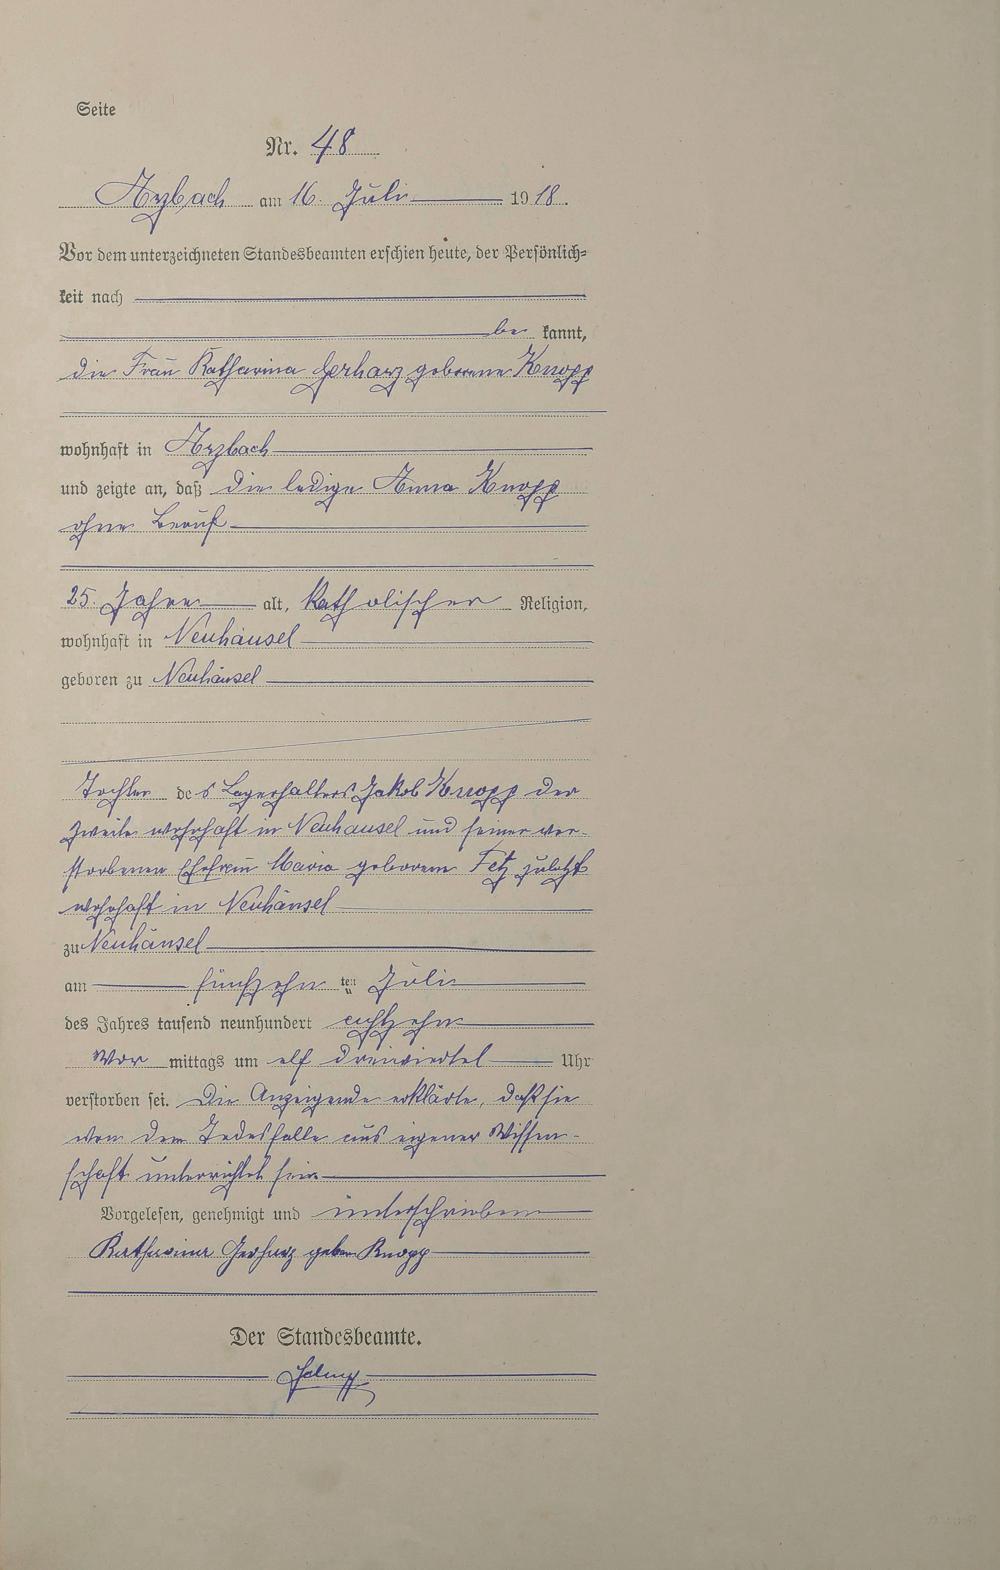 Seite
Nr. 48
Arzbach am 16. Juli 1918.
Vor dem unterzeichneten Standesbeamten erschien heute, der Persönlich-
keit nach
be kannt,
die Frau Katharina Gerharz geborene Knopp
wohnhaft in Arzbach
und zeigte an, daß die ledige Anna Knopp
ohne Beruf
25 Jahre alt, katholischer Religion,
wohnhaft in Neuhäusel
geboren zu Neuhäusel
Tochter des Lagerhalters Jakob Knopp der
Zweite wohnhaft in Neuhäusel und seiner ver-
storbenen Ehefrau Maria geborene zuletzt
wohnhaft in Neuhäusel
zu Neuhäusel
am fünfzehn ten Juli
des Jahres tausend neunhundert achtzehn
Vor mittags um elf dreiviertel Uhr
verstorben sei. Die Anzeigende erklärte, daß sie
von dem Todesfalle aus eigener Wissen-
schaft unterrichtet sei
Vorgelesen, genehmigt und unterschrieben
Katharina Gerharz geben Knopp
Der Standesbeamte.